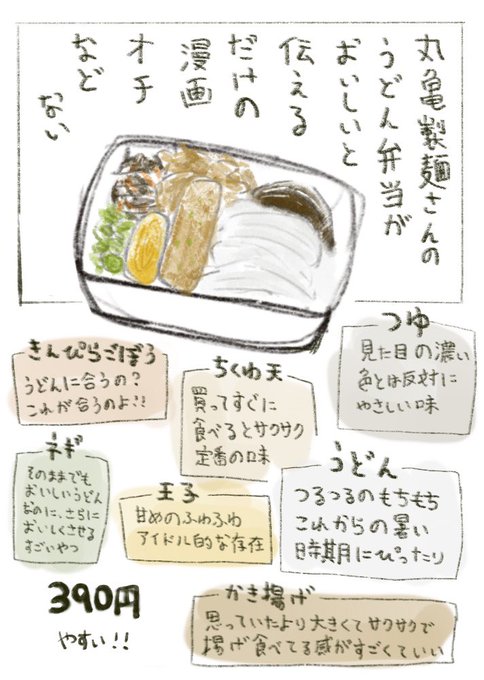 丸亀製麺さんの
うどん弁当が
おいしいと
伝える
だけの
漫画
オチ
など
ない
つゆ
見た目の濃い
色とは反対に
やさしい味
きんぴらごぼう
うどんに合うの？
これが合うのよ!!
ちくわ天
買ってすぐに
食べるとサクサク
定番の味
ネギ
そのままでも
おいしいうどん
なのに、さらに
おいしくさせる
すごいやつ
玉子
甘めのふわふわ
アイドル的な存在
うどん
つるつるのもちもち
これからの暑い
時期にぴったり
390円
やすい!!
かき揚げ
思っていたより大きくてサクサクで
揚げ食べてる感がすごくていい